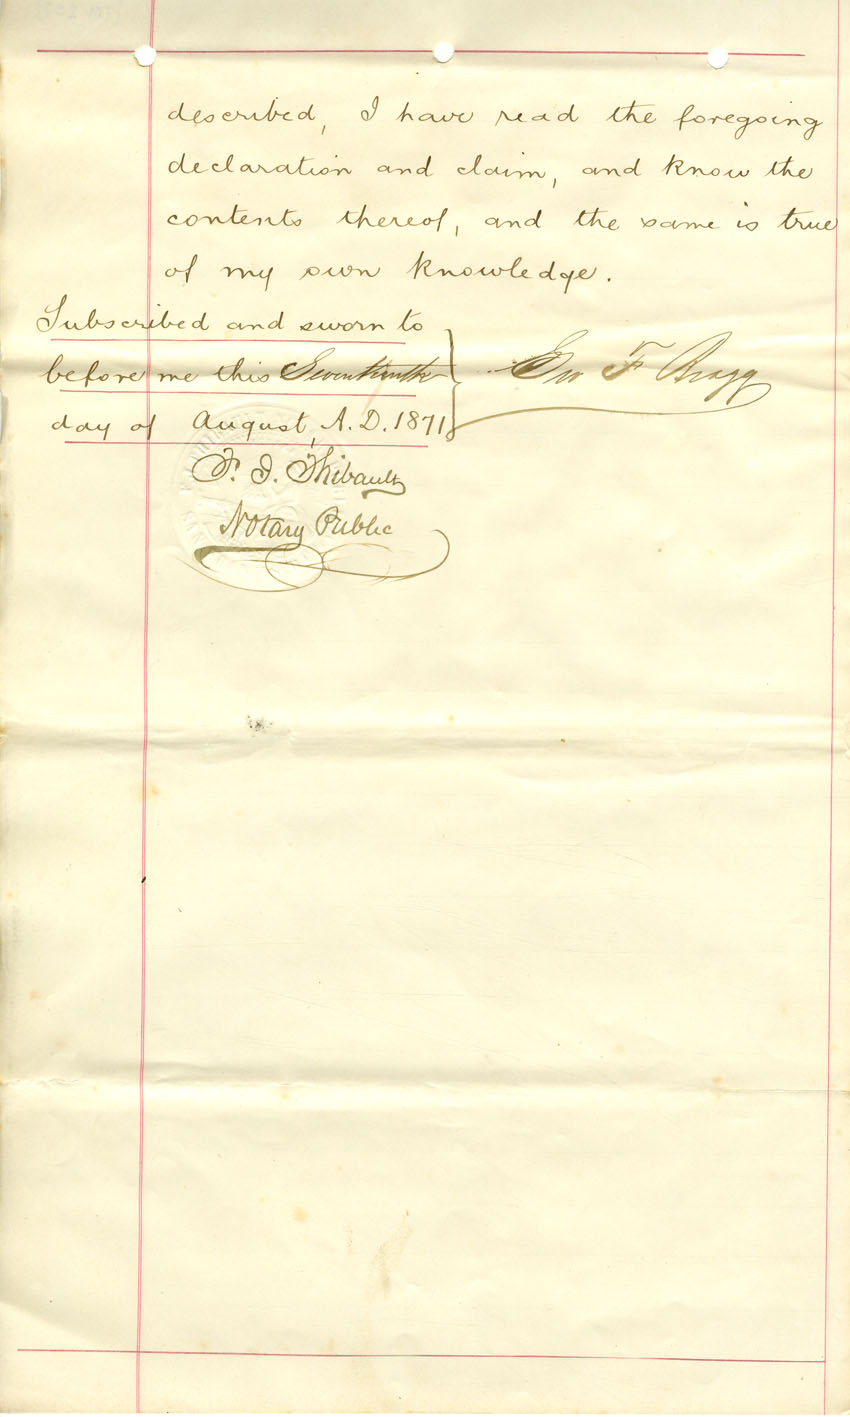 described, I have read the foregoing
declaration and claim, and know the
contents thereof, and the same is true
of my own knowledge.
Subscribed and sworn to
before me this Seventeenth
day of August, A. D. 1871
Geo F Bragg
F. J. Thibault
Notary Public